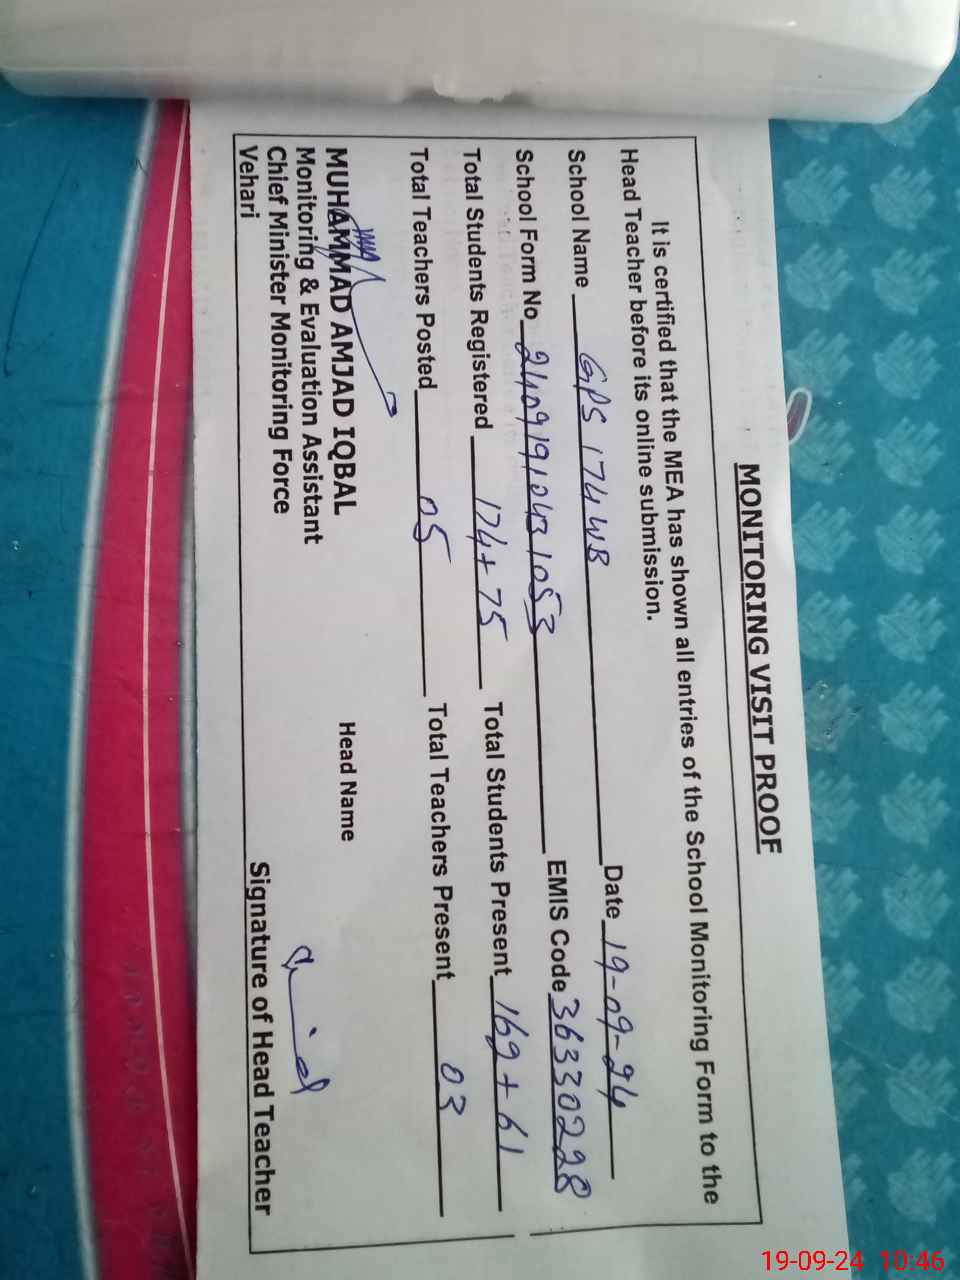 MONITORING VISIT PROOF
It is certified that the MEA has shown all entries of the School Monitoring Form to the
Head Teacher before its online submission.
School Name GPS 174 WB Date 19-09-24
School Form No 24091910431053 EMIS Code 36330228
Total Students Registered 174+75 Total Students Present 169+61
Total Teachers Posted 05 Total Teachers Present 03
MUHAMMAD AMJAD IQBAL Head Name
Monitoring & Evaluation Assistant
Chief Minister Monitoring Force
Vehari Signature of Head Teacher
19-09-24 10:46